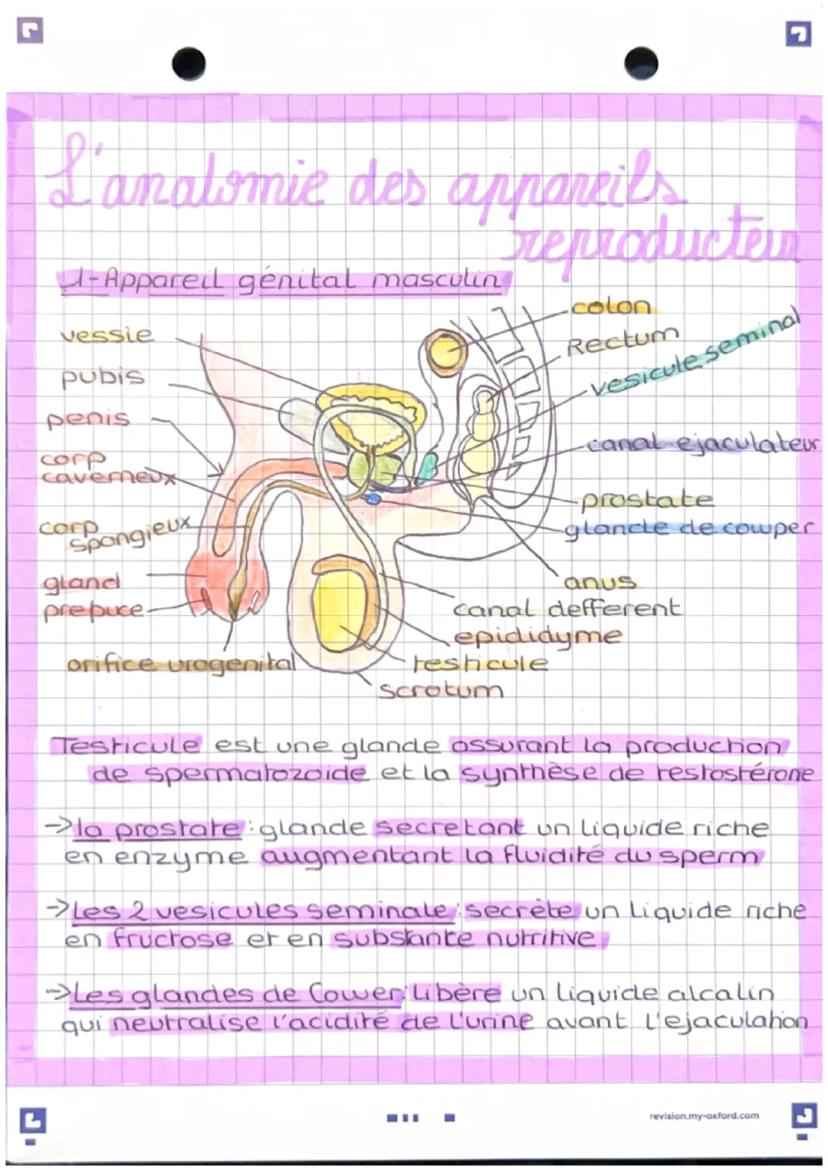 L'anatomie des appareils
reproducteur
1-Appareil génital masculin
vessie
pubis
penis
corp
caverneux
corp
spongieux
gland
prepuce
orifice urogenital
colon
Rectum
vesicule seminal
canal ejaculateur
prostate
glande de cowper
anus
canal defferent
epididyme
testicule
scrotum
Testicule est une glande assurant la production
de spermatozoide et la synthèse de testostérone
→la prostate : glande secretant un liquide riche
en enzyme augmentant la fluidité du sperm
→Les 2 vesicules seminale : secrète un liquide riche
en fructose et en substante nutritive
→Les glandes de Cower : libère un liquide alcalin
qui neutralise l'acidité de l'urine avant l'ejaculation
revision.my-oxford.com